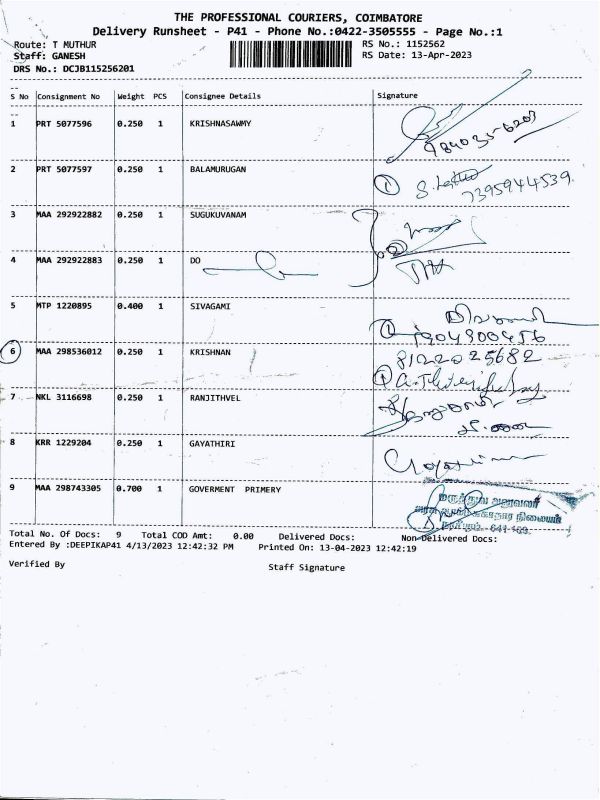 THE PROFESSIONAL COURIERS, COIMBATORE
Delivery Runsheet - P41 - Phone No.:0422-3505555 - Page No.:1
Route: T MUTHUR RS No.: 1152562
Staff: GANESH RS Date: 13-Apr-2023
DRS No.: DCJB115256201
S No Consignment No Weight PCS Consignee Details Signature
1 PRT 5077596 0.250 1 KRISHNASAWMY
2 PRT 5077597 0.250 1 BALAMURUGAN
7395944539.
3 MAA 292922882 0.250 1 SUGUKUVANAM
4 MAA 292922883 0.250 1 DO
5 MTP 1220895 0.400 1 SIVAGAMI
6 MAA 298536012 0.250 1 KRISHNAN 8122025682
7 NKL 3116698 0.250 1 RANJITHVEL
8 KRR 1229204 0.250 1 GAYATHIRI
9 MAA 298743305 0.700 1 GOVERMENT PRIMERY
மருத்துவ அலுவலர்
Total No. Of Docs: 9 Total COD Amt: 0.00 Delivered Docs: Non-Delivered Docs:
Entered By :DEEPIKAP41 4/13/2023 12:42:32 PM Printed On: 13-04-2023 12:42:19
Verified By Staff Signature